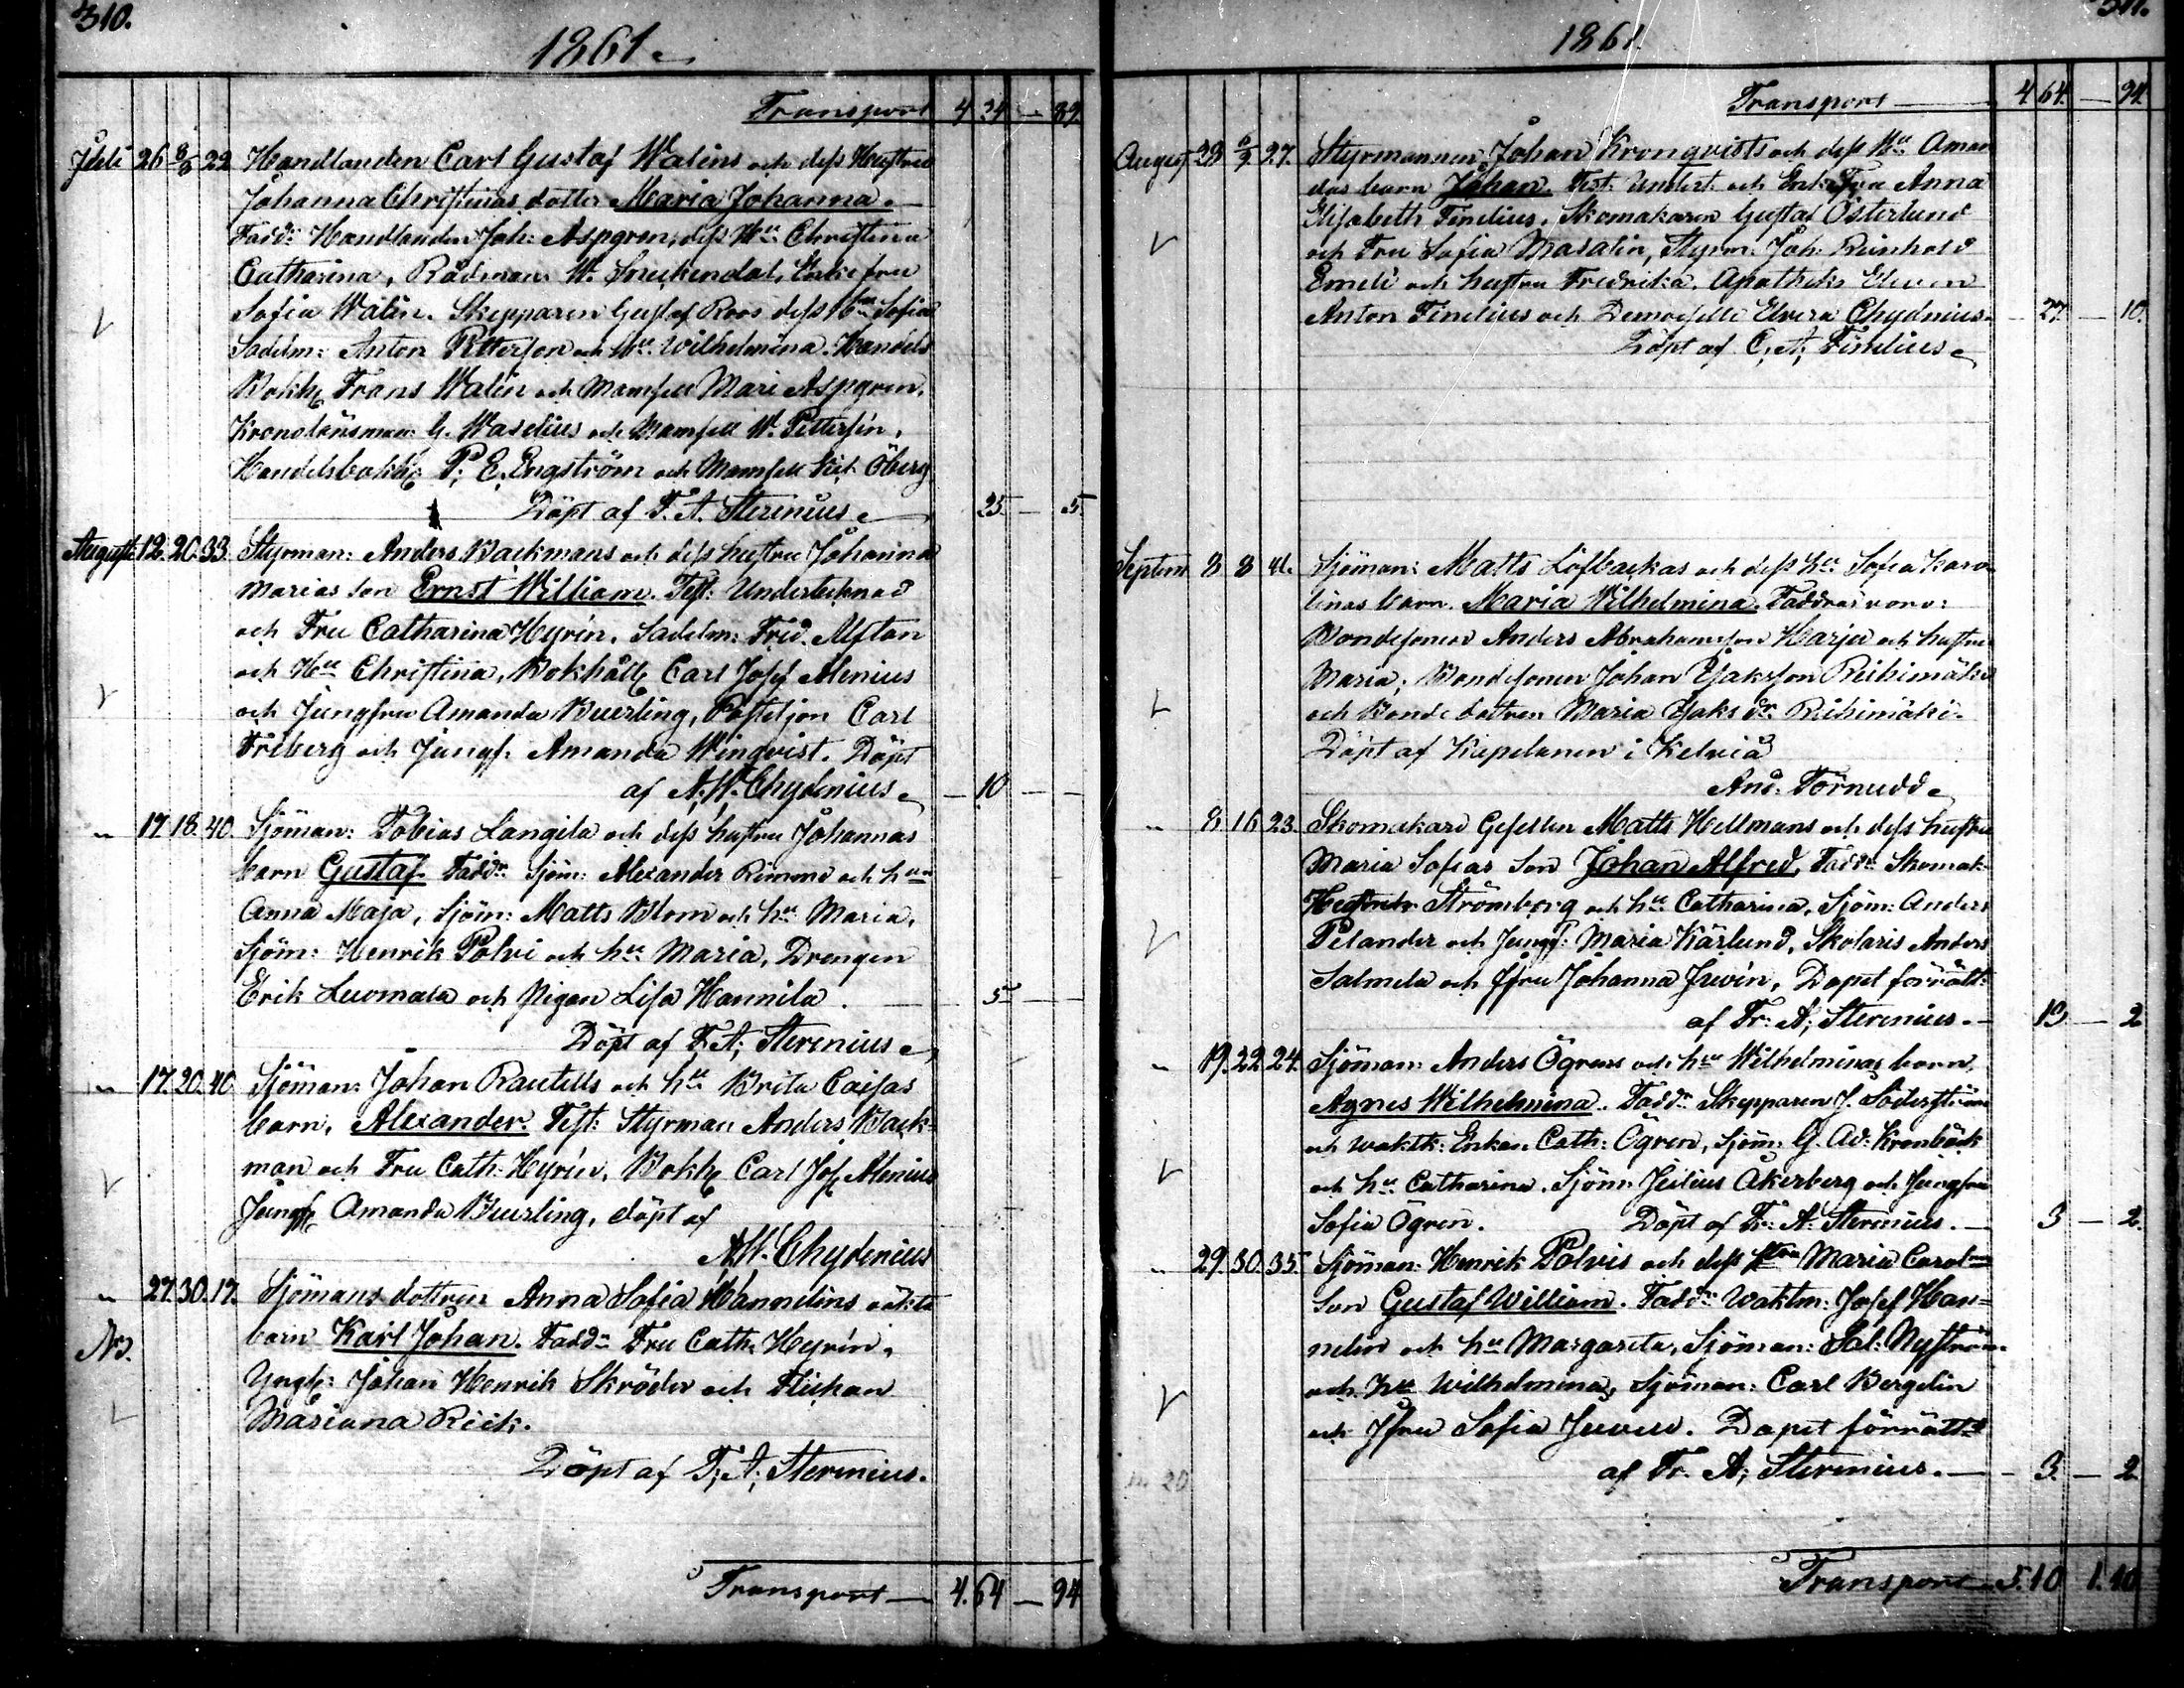 310.
1861.
Transport 4 34 — 89
Juli 26 8/8 22 Handlanden Carl Gustaf Walins och dess Hustru
Johanna Christinas dotter Maria Johanna.
Fadd: Handlanden Joh: Aspgren, dess Hu Christina
Catharina, Rådman W. Snickendal, Enkefru
Sofia Walin. Skepparen Gustaf Roos dess Hu Sofia
Sadelm: Anton Petterson och Hu Wilhelmina. Handels
Bokh. Frans Walin och Mamsell Mari Aspgren,
Kronolänsman G. Waselius och Mamsell W. Pettersin,
Handelsbokh. P. E. Engström och Mamsell Öberg
Döpt af F. A. Sterenius 25 — 5
August 12. 20. 33. Styrman: Anders Backmans och dess hustru Johanna
Marias son Ernst William. Test: Undertecknad
och Fru Catharina Hyrén, Sadelm: Fred. Alftan
och Hu Christina, Bokhåll Carl Josef Alenius
och Jungfru Amanda Buerling, Posteljon Carl
Friberg och Jungf. Amanda Winqvist. Döpt
af A. W. Chydenius — 10 — —
" 17. 18. 40. Sjöman: Tobias Langila och dess hustru Johannas
barn Gustaf. Fadd: Sjöm: Alexander Rimmi och hu
Anna Maja, Sjöm: Matts Blom och hu Maria,
Sjöm: Henrik Polvi och hu Maria, Drengen
Erik Luomala och Pigan Lisa Hannila. — 5 — —
Döpt af F. A. Sterenius
" 17. 20. 40. Sjöman: Johan Rautells och hu Brita Caisas
barn, Alexander. Test: Styrman Anders Back-
man och Fru Cath: Hyrén, Bokh Carl Jos. Alenius
Jungf Amanda Buerling, döpt af
A. W. Chydenius
" 27. 30. 17. Sjömans dottren Anna Sofia Hannelins oäkta
barn Karl Johan. Fadd: Fru Cath. Heyrén,
Yngl: Johan Henrik Skröder och Flickan
Mariana Riik.
Döpt af F. A. Sterenius.
Transport — 4. 64 — 94
311.
1861.
Transport 4 64. — 94.
August 23 6/9 27. Styrmannen Johan Kronqvists och dess Hu Aman
das barn Johan. Test: Undert. och Enkefru Anna
Elisabeth Finelius, Skomakaren Gustaf Österlund
och Fru Sofia Masalin, Styrm: Joh. Reinhold
Emeli och hustru Fredrika. Apotheks Eleven
Anton Finelius och Demoiselle Elvira Chydenius. — 27. — 10.
Döpt af C. A. Finelius
Septem 8 8 41. Sjöman: Matts Löfbackas och dess hu Sofia Karo
linas barn. Maria Wilhelmina. Faddrar voro:
Bondesonen Anders Abrahamsson Harju och hustru
Maria; Bondesonen Johan Isaksson Riihimäki
och Bondedottren Maria Isaks dr Riihimäki.
Döpt af Kapelanen i Kelviå
And. Törnudd
" 8 16 23. Skomakare Gesellen Matts Hellmans och dess hustru
Maria Sofias son Johan Alfred, Fadd: Skomak:
Strömberg och hu Catharina, Sjöm: Anders
Pelander och Jungf: Maria Kärlund, Skolaris Anders
Salmela och Jfru Johanna Juvén, Dopet förrätt:
af Fr: A. Sterenius. — 13 — 2
" 19. 22 24. Sjöman: Anders Ögrens och hu Wilhelminas barn
Agnes Wilhelmina. Fadd: Skepparen J. Söderström
och waktk: Enkan Cath: Ögren, Sjöm: G. Ad. Kronbäck
och hu Catharina. Sjöm: Julius Åkerberg och Jungfru
Sofia Ögren. Döpt af Fr: A. Sterenius. — 3 — 2.
" 29. 30. 35. Sjöman: Henrik Polvis och dess Maria Carol
son Gustaf William. Fadd: Waktm: Josef Han=
nelin och hu Margareta, Sjöman: Sal: Nyström
och hu Wilhelmina, Sjöman: Carl Bergelin
och Jfru Sofia Juven. Dopet förrätt:
af Fr. A. Sterenius. — 3. — 2
Transport 5. 10 1. 10